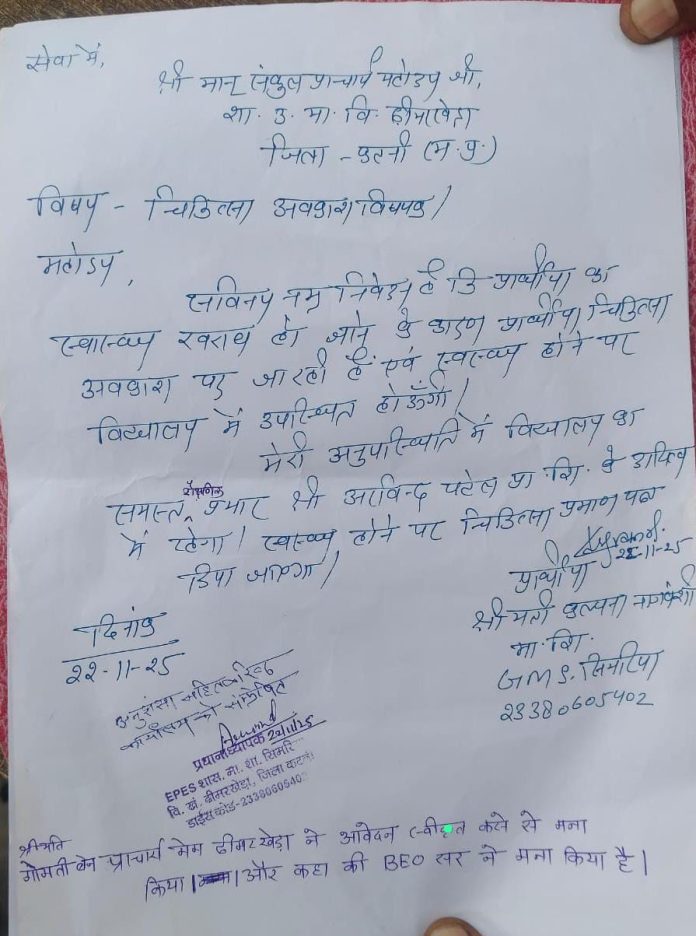 सेवा में,
श्री मान् संकुल प्राचार्य महोदय जी,
शा. उ. मा. वि. ढीमरखेड़ा
जिला - कटनी (म.प्र.)
विषय - चिकित्सा अवकाश विषयक।
महोदय,
सविनय नम्र निवेदन है कि प्रार्थीया का
स्वास्थ्य खराब हो जाने के कारण प्रार्थीया चिकित्सा
अवकाश पर जा रही है एवं स्वस्थ्य होने पर
विद्यालय में उपस्थित होऊँगी।
मेरी अनुपस्थिति में विद्यालय का
समस्त शैक्षणिक प्रभार श्री अरविन्द पटेल प्रा. शि. के दायित्व
में रहेगा। स्वास्थ्य होने पर चिकित्सा प्रमाण पत्र
दिया जाएगा।
22-11-25
प्रार्थीया
श्री मती कल्पना नागवंशी
मा. शि.
GMS. सिमरिया
23380605402
दिनांक
22-11-25
अनुशंसा सहित वरिष्ठ
कार्यालय को संप्रेषित
22/11/25
प्रधानाध्यापक
EPES शास. मा. शा. सिमरि
वि. खं. ढीमरखेड़ा, जिला कटनी
डाईस कोड-2338060540
श्रीमति
गोमती बेन प्राचार्य मेम ढीमरखेड़ा ने आवेदन स्वीकृत करने से मना
किया। और कहा की BEO सर ने मना किया है।